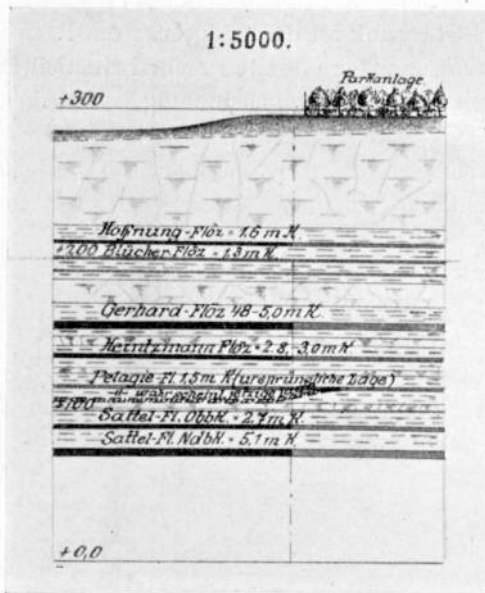 1:5000.
Parkanlage.
+300
Hoffnung-Flöz = 1.6 m K.
+200 Blücher Flöz = 1.3 m K.
Gerhard-Flöz 4.8-5,0m K.
Heintzmann Flöz = 2.8, -3,0m K
Pelagie-Fl. 1.5 m K (ursprüngliche Lage)
" wahrscheinl. jetzige
+100
Sattel-Fl. Obbk. = 2.7 m K.
Sattel-Fl. Ndbk. = 5,1 m K.
+0,0